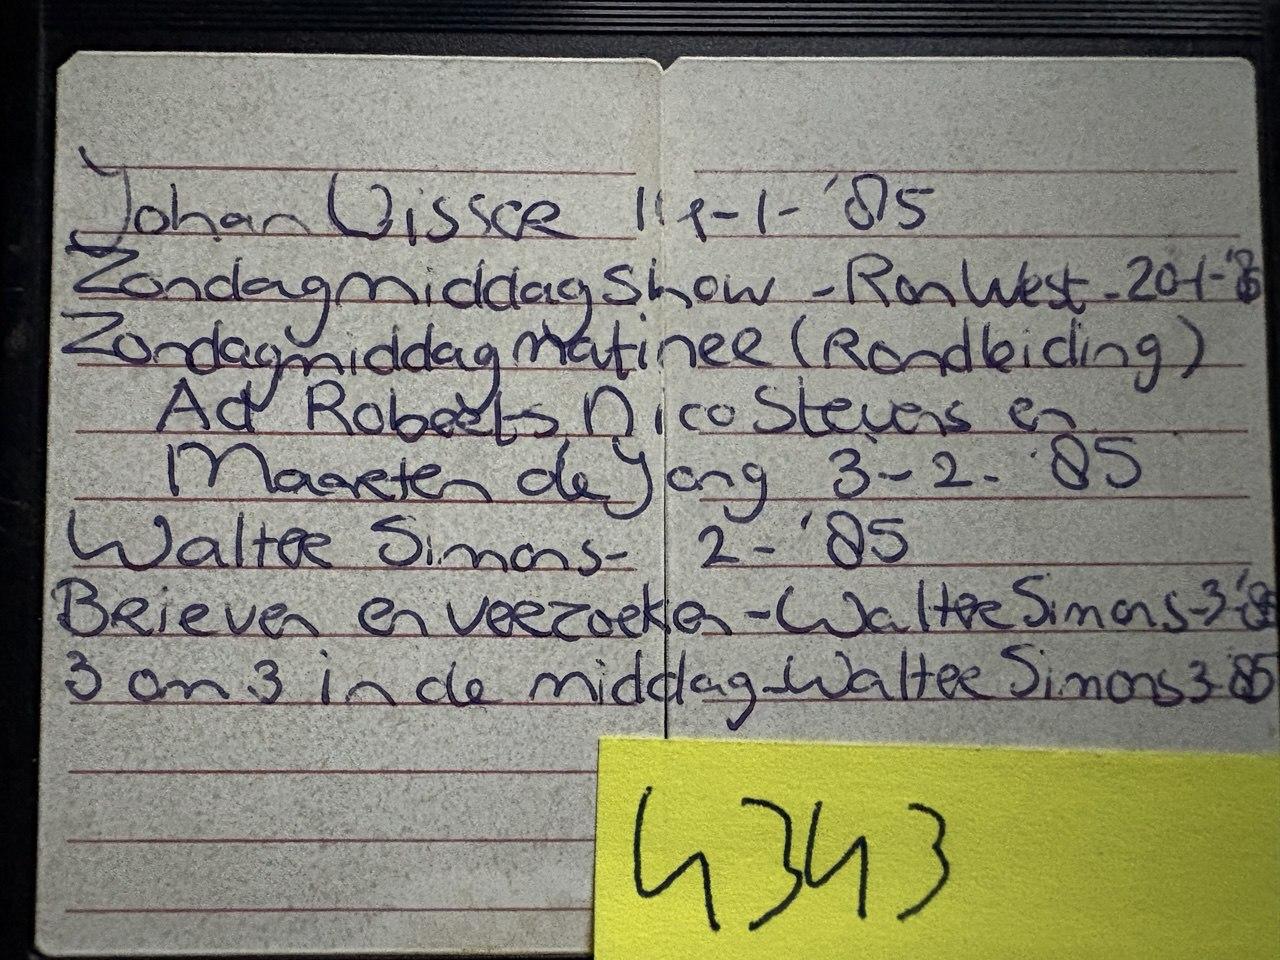 Johan Visser 14-1-'85
Zondagmiddagshow - Ron West - 20-1-'85
Zondagmiddagmatinee (Rondleiding)
Ad Roberts Nico Stevens en
Maarten de Jong 3-2-'85
Walter Simons- 2-'85
Brieven en verzoeken - Walter Simons-3-'85
3 om 3 in de middag - Walter Simons 3-'85
4343